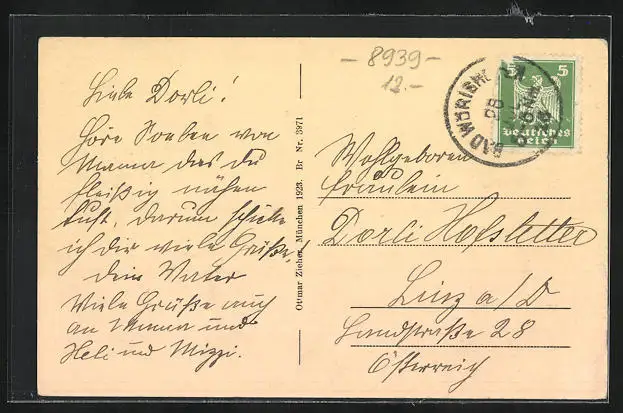 - 8939 -
12.-
Liebe Dorli!
Höre soeben von
Mama das du
fleißig nähen
tust, darum schicke
ich dir viele Grüße,
dein Vater
Viele Grüße auch
an Mama und
Heli und Mizzi.
Ottmar Zieher, München 1923. Br Nr. 3971
BAD WÖRISH
5 5
Deutsches
Reich
Wohlgeboren
Fräulein
Dorli Hofstetter
Linz a/D
Landstraße 28
Österreich